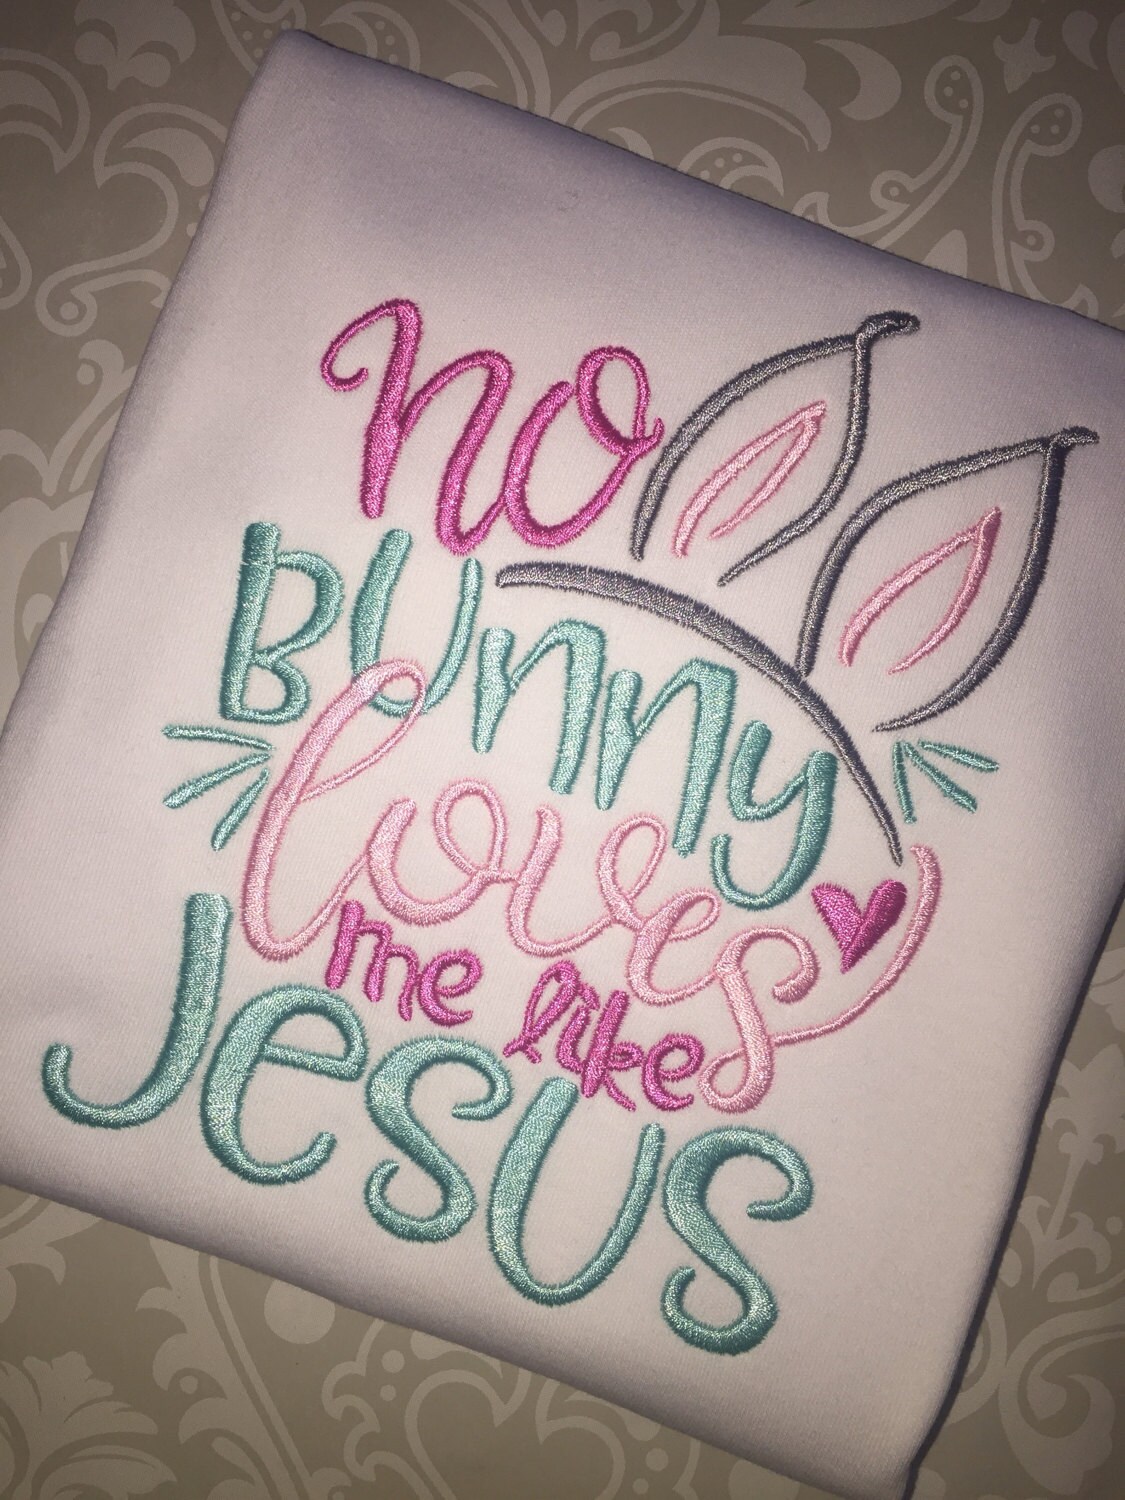 no
Bunny
loves
me like
Jesus